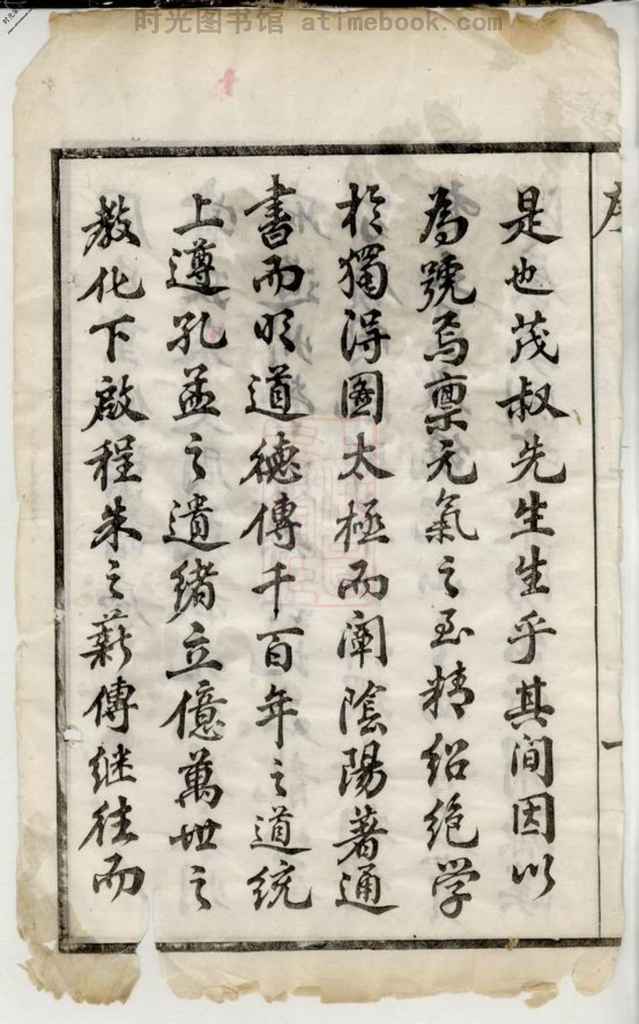 时光图书馆 atimebook.com
是也茂叔先生生乎其间因以
為號焉禀元氣之至精紹絶学
於獨得圖太極而闡陰陽著通
書而明道德傳千百年之道統
上遵孔孟之遺緒立億萬世之
教化下啟程朱之薪傳继往而
序
一